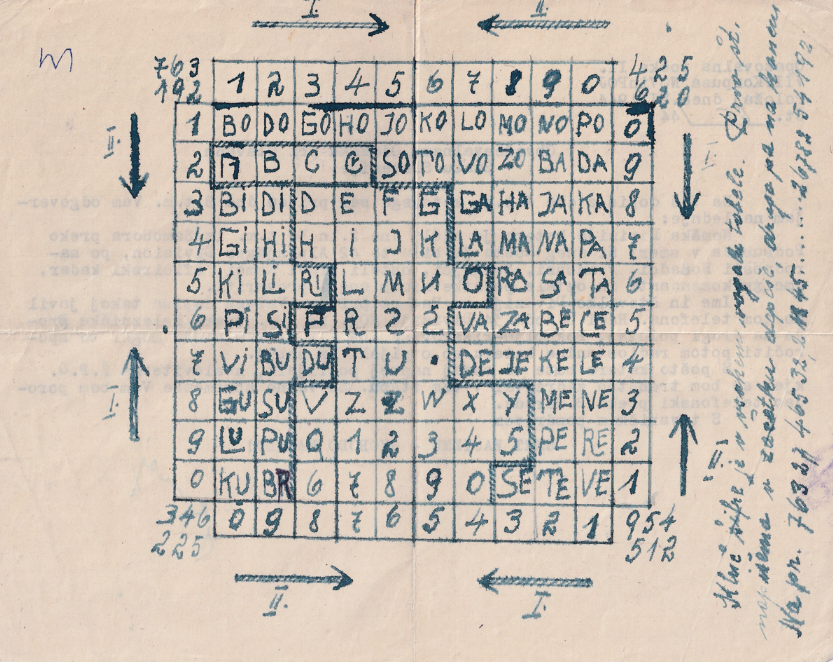 I. II.
763 425
192 620
1 2 3 4 5 6 7 8 9 0
1 BO DO GO HO JO KO LO MO NO PO 0
2 A B C Č SO TO VO ZO BA DA 9
3 BI DI D E F G GA HA JA KA 8
4 GI HI H I J K LA MA NA PA 7
5 KI LI RI L M N O RA SA TA 6
6 PI SI P R S Š VA ZA BE CE 5
7 VI BU DU T U . DE JE KE LE 4
8 GU SU V Z Ž W X Y ME NE 3
9 LU PU Q 1 2 3 4 5 PE RE 2
0 KU BR 6 7 8 9 0 SE TE VE 1
346 0 9 8 7 6 5 4 3 2 1 954
225 512
II. I.
II.
I.
Ključ šifre je v vogalu tabele. Prvo št.
na začetku depeše, drugo pa na koncu
Na pr. 76327